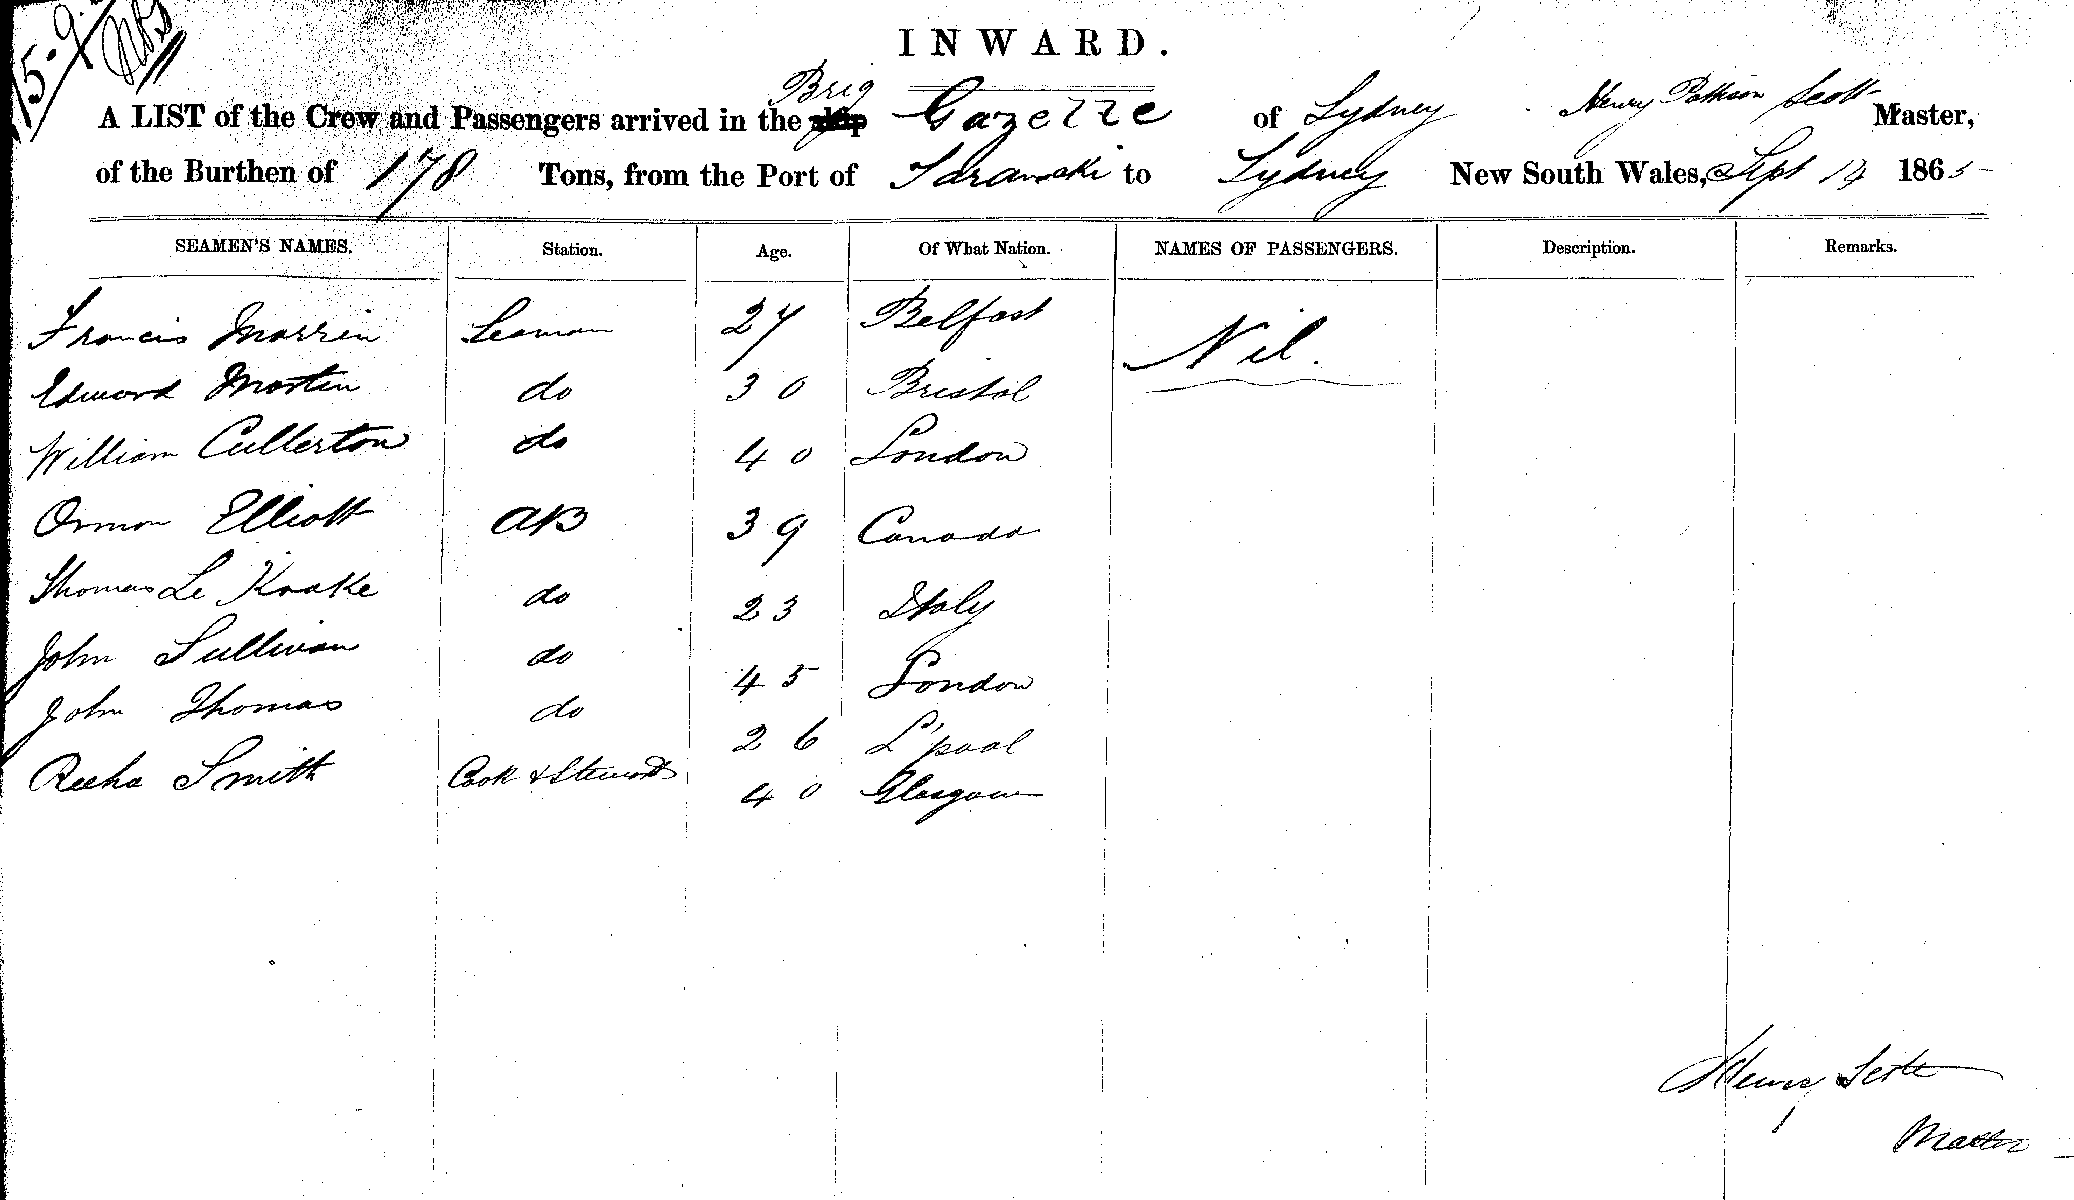 15-9
INWARD.
A LIST of the Crew and Passengers arrived in the Brig Gazelle of Sydney Henry Scott Master,
of the Burthen of 178 Tons, from the Port of Taranaki to Sydney New South Wales, Sept 14 1865
SEAMEN'S NAMES. Station. Age. Of What Nation. NAMES OF PASSENGERS. Description. Remarks.
Francis Morrin Seaman 27 Belfast Nil.
Edward Martin do 30 Bristol
William Cullerton do 40 London
Ormon Elliott AB 39 Canada
Thomas Le Krake do 23 Italy
John Sullivan do 45 London
John Thomas do 26 L'pool
Smith Cook & Steward 40 Glasgow
Henry Scott
Master